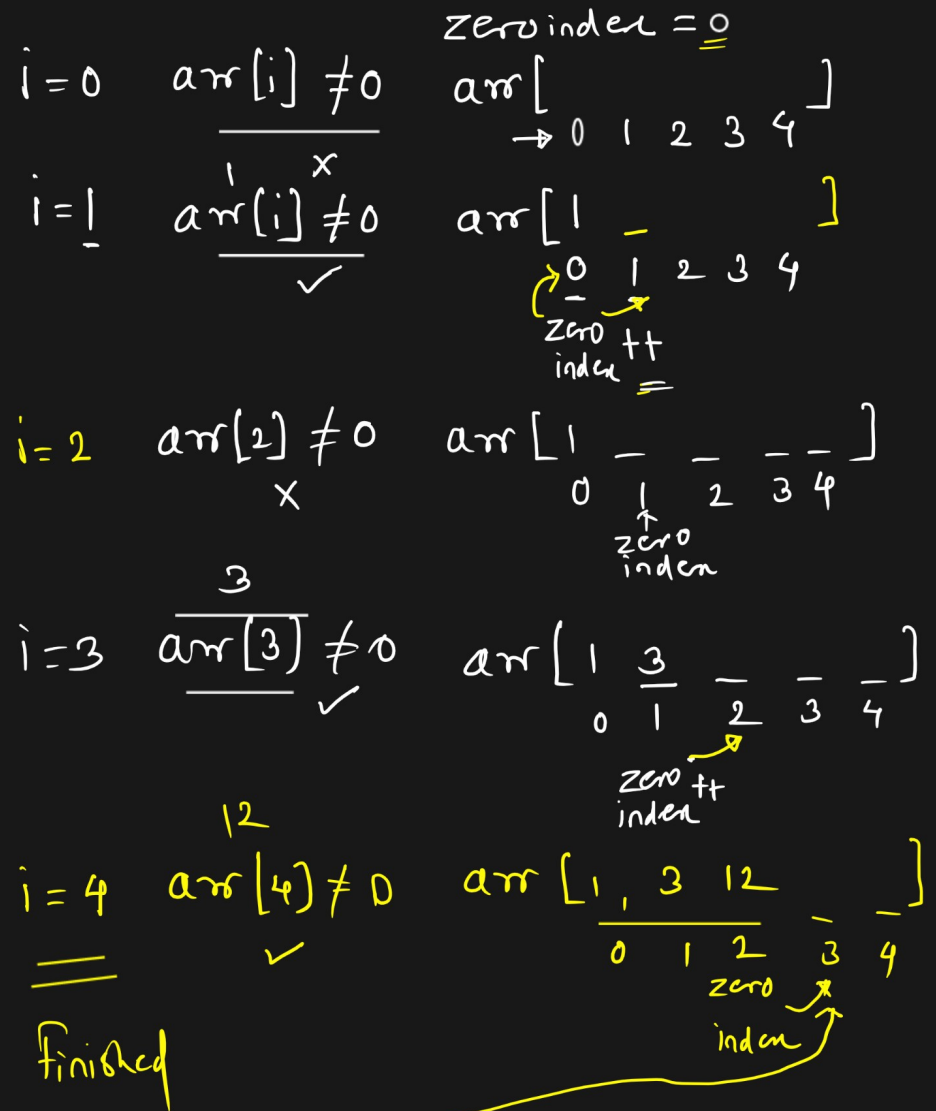 zero index = 0
i = 0 arr[i] ≠ 0 arr[ ]
x → 0 1 2 3 4
1
i = 1 arr[i] ≠ 0 arr[ 1 _ ]
✓ 0 1 2 3 4
zero
index ++
i = 2 arr[2] ≠ 0 arr[ 1 _ _ _ _ ]
x 0 1 2 3 4
↑
zero
index
3
i = 3 arr[3] ≠ 0 arr[ 1 3 _ _ _ ]
✓ 0 1 2 3 4
zero ++
index
12
i = 4 arr[4] ≠ 0 arr[ 1, 3 12 _ _ ]
✓ 0 1 2 3 4
zero
index
Finished